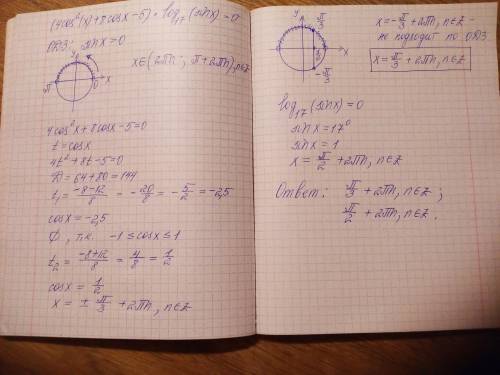 (4cos²(x)+8cosx-5) · log₁₇(sinx)=0
ОДЗ: sinx>0
y
x
π
0
x∈(2πn ; π+2πn), n∈Z
4cos²x+8cosx-5=0
t=cosx
4t²+8t-5=0
D=64+80=144
t₁= (-8-12)/8 = -20/8 = -5/2 = -2,5
cosx=-2,5
∅, т.к. -1≤cosx≤1
t₂= (-8+12)/8 = 4/8 = 1/2
cosx= 1/2
x= ± π/3 +2πn, n∈Z
y
π/3
x
-π/3
x=-π/3 +2πn, n∈Z -
не подходит по ОДЗ
x= π/3 +2πn, n∈Z
log₁₇(sinx)=0
sinx=17⁰
sinx=1
x= π/2 +2πn, n∈Z
Ответ: π/3 +2πn, n∈Z ;
π/2 +2πn, n∈Z .